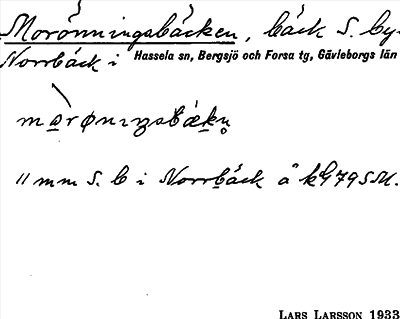 Morönningsbäcken, bäck S. by
Norrbäck i Hassela sn, Bergsjö och Forsa tg, Gävleborgs län
11 mm S. b i Norrbäck å
LARS LARSSON 1933